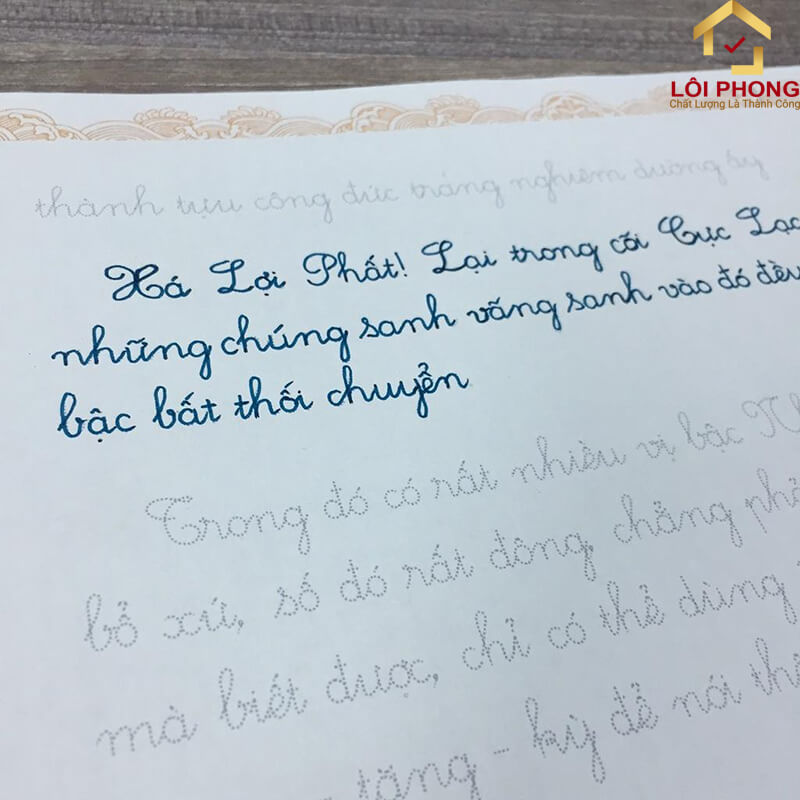 LÔI PHONG
Chất Lượng Là Thành Công
thành tựu công đức trang nghiêm dường ấy
Xá Lợi Phất! Lại trong cõi Cực Lạc
những chúng sanh vãng sanh vào đó đều
bậc bất thối chuyển
Trong đó có rất nhiều vị bậc
bổ xứ, số đó rất đông, chẳng
mà biết được, chỉ có thể dùng
tăng - kỳ để nói